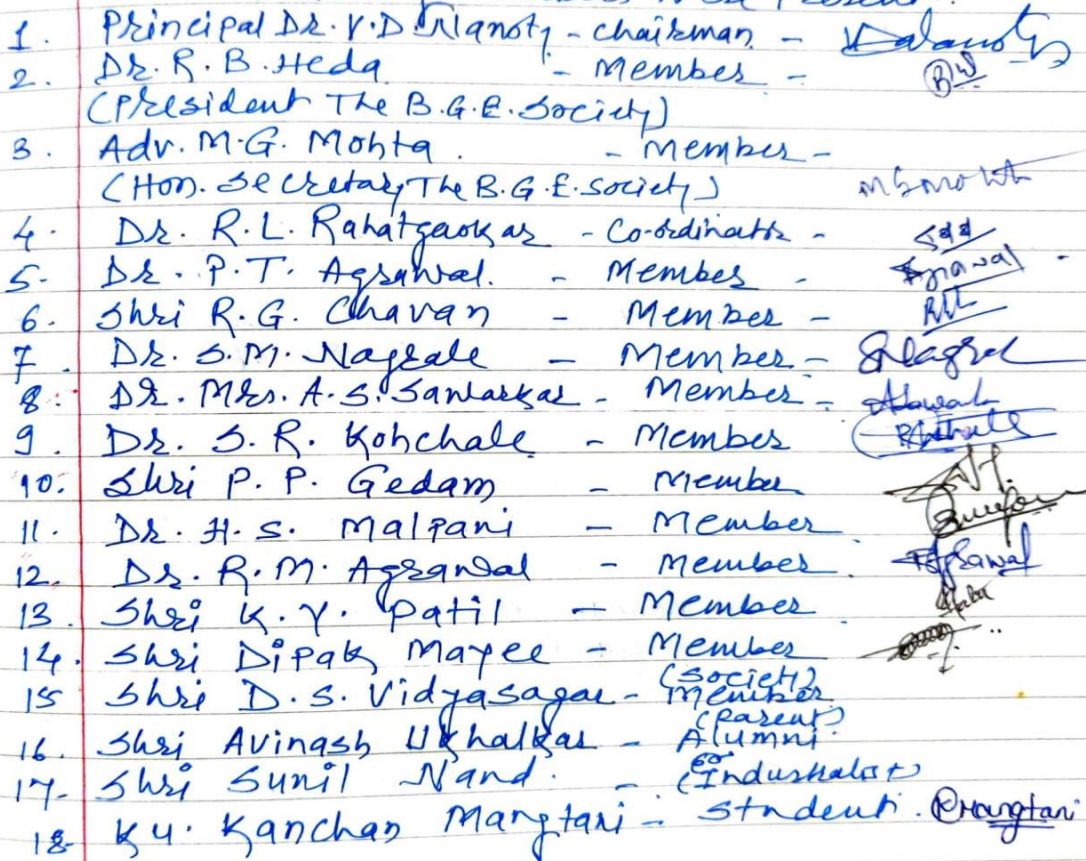 1. Principal Dr. V.D. Nanoty - Chairman -
2. Dr. R. B. Heda - Member -
(President The B.G.E. Society)
3. Adv. M.G. Mohta. - Member -
(Hon. Secretary The B.G.E. Society)
4. Dr. R.L. Rahatgaokar - Co-ordinator -
5. Dr. P.T. Agrawal. - Member -
6. Shri R.G. Chavan - Member -
7. Dr. S.M. Nagrale - Member -
8. Dr. Mrs. A.S. Sawarkar - Member -
9. Dr. S.R. Kohchale - Member
10. Shri P.P. Gedam - Member
11. Dr. H.S. Malpani - Member
12. Dr. R.M. Agrawal - Member
13. Shri K.Y. Patil - Member
14. Shri Dipak Mayee - Member
(Society)
15 Shri D.S. Vidyasagar - Member
(Parent)
16. Shri Avinash Ukhalkar - Alumni
17. Shri Sunil Nand. - (Industrialist)
18. Ku. Kanchan Mangtani - Student. Kmangtani